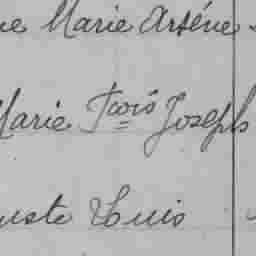 ne Marie Arsène
Marie Fçois Joseph
uste Louis